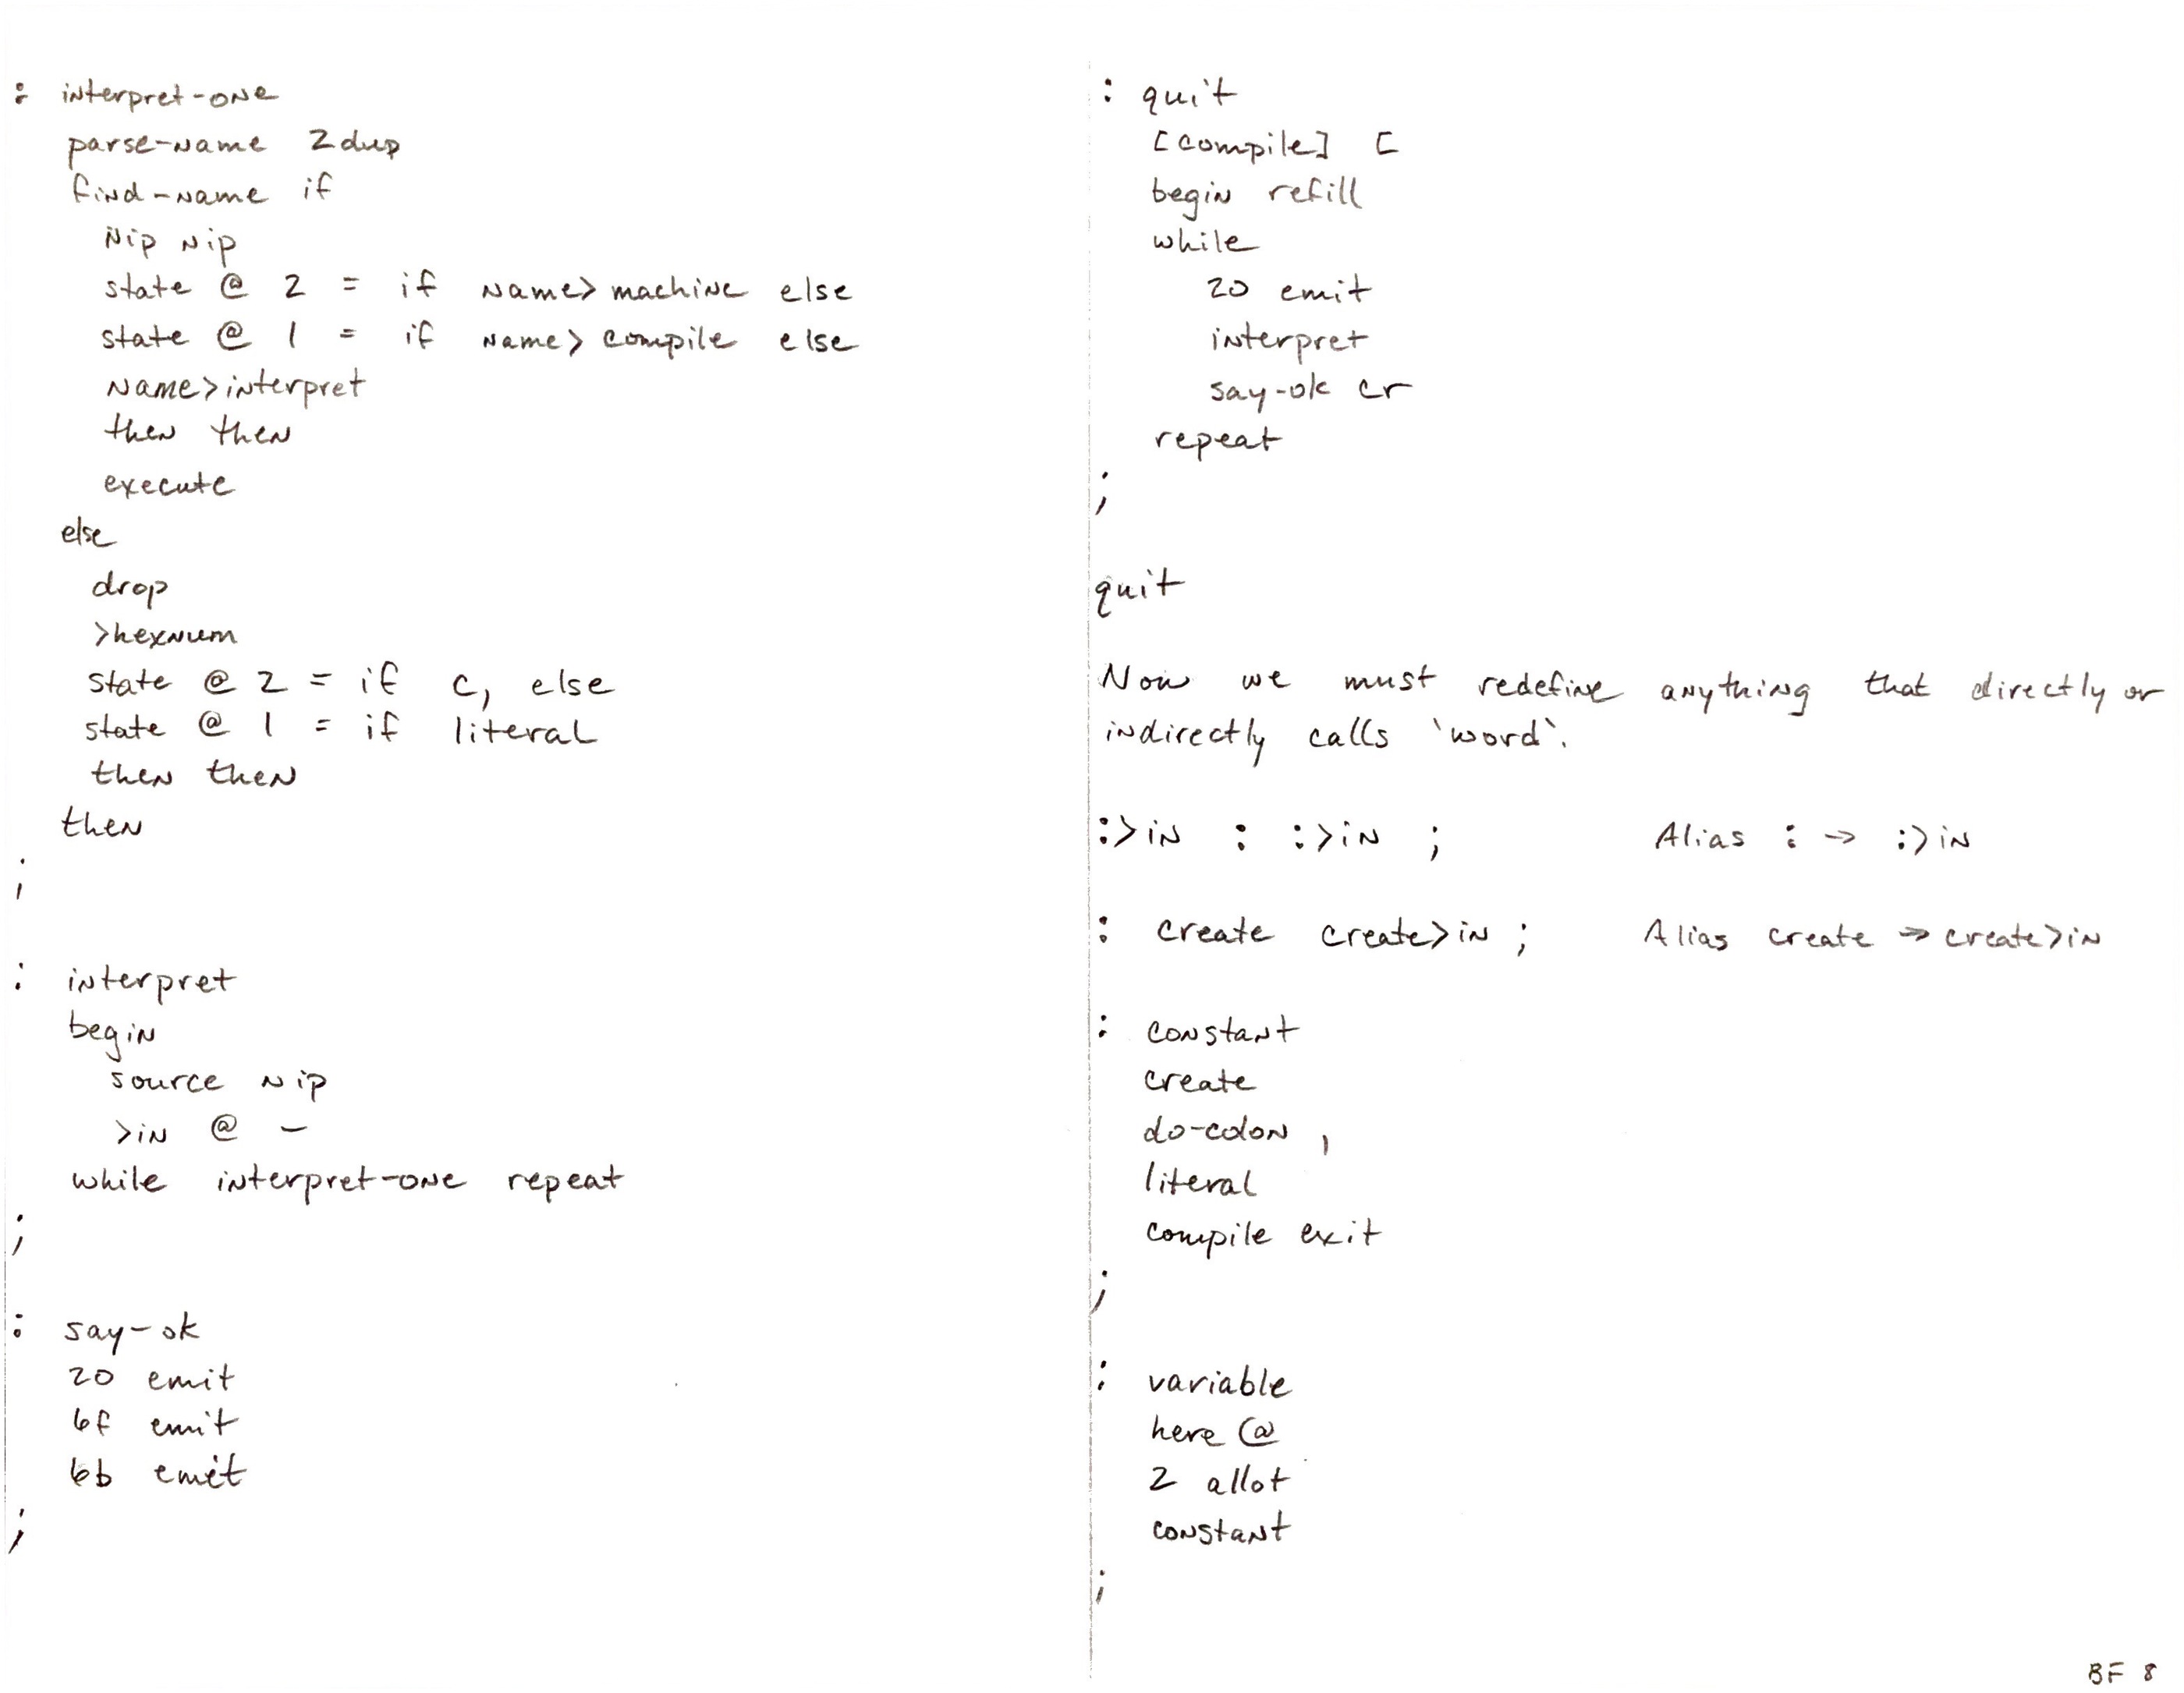 : interpret-one
parse-name 2dup
find-name if
nip nip
state @ 2 = if name>machine else
state @ 1 = if name>compile else
name>interpret
then then
execute
else
drop
>hexnum
state @ 2 = if c, else
state @ 1 = if literal
then then
then
;
: interpret
begin
source nip
>in @ -
while interpret-one repeat
;
: say-ok
20 emit
6f emit
6b emit
;
: quit
[compile] [
begin refill
while
20 emit
interpret
say-ok cr
repeat
;
quit
Now we must redefine anything that directly or
indirectly calls `word`.
:>in : :>in ; Alias : → :>in
: create create>in ; Alias create → create>in
: constant
create
do-colon ,
literal
compile exit
;
: variable
here @
2 allot
constant
;
BF 8